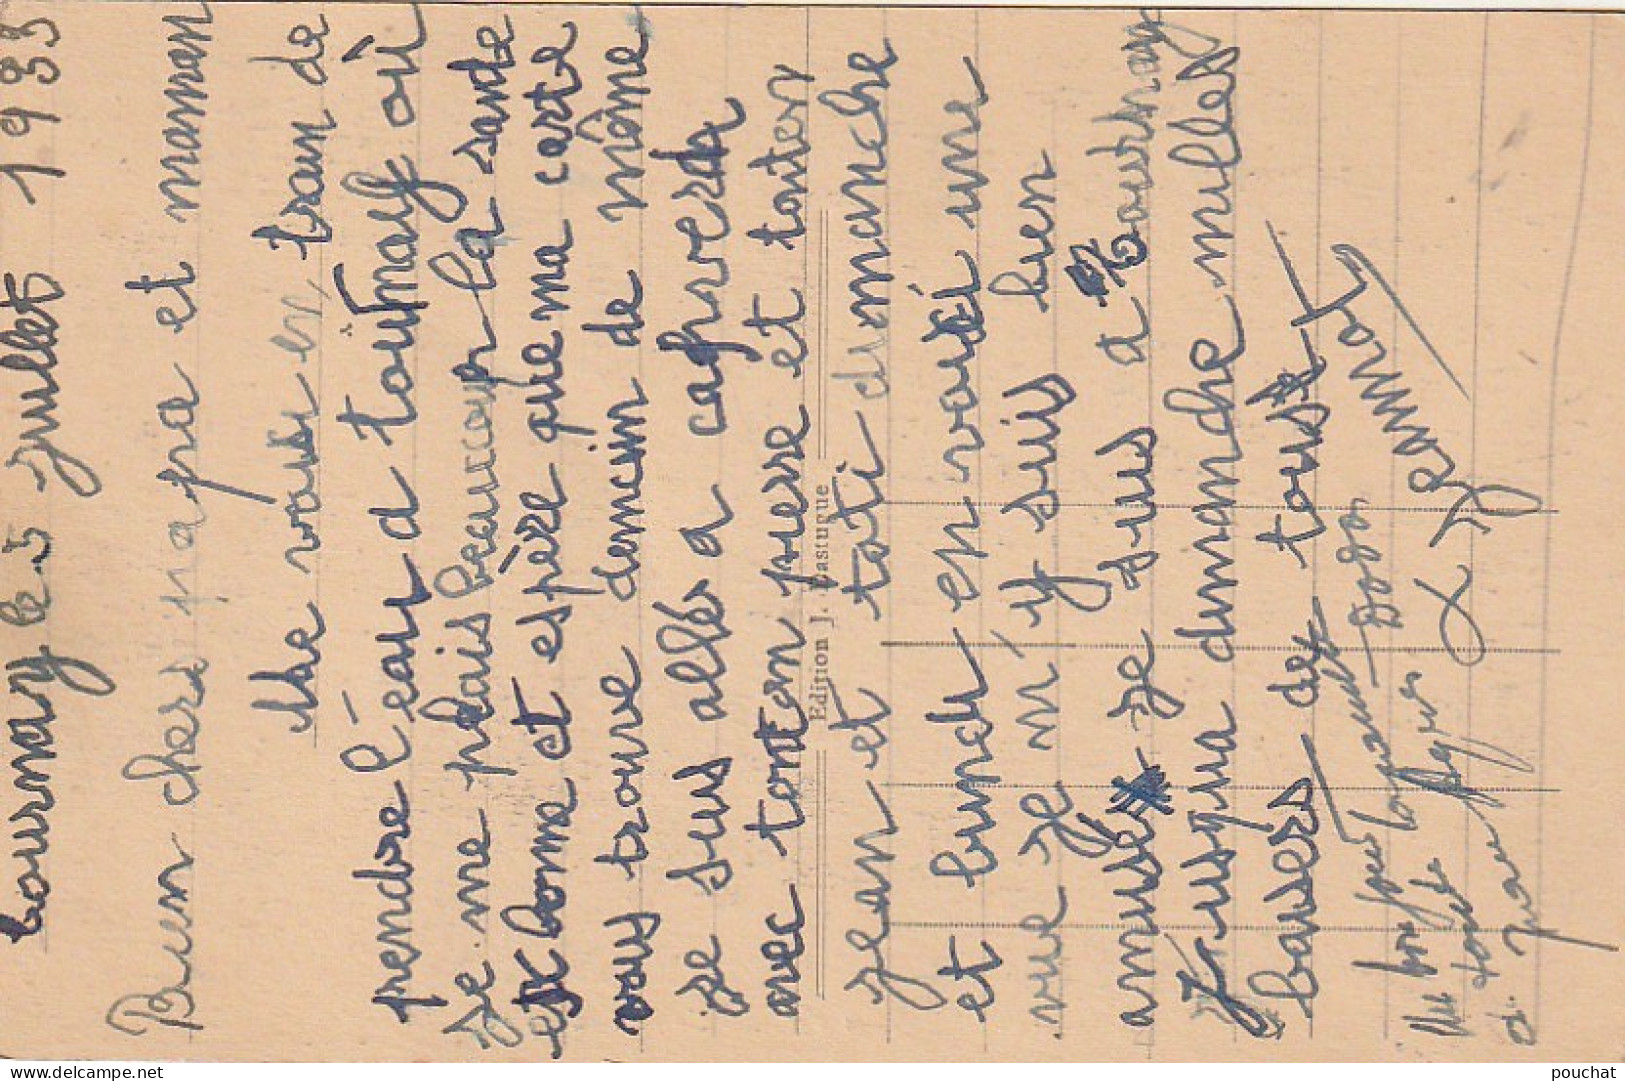 tournay le 5 juillet 1933
Bien chers papa et maman
Me voisi en, train de
prendre l'éau a tournay où
je me plais beaucoup la sande
est bonne et espère que ma carte
vous trouve demein de même
je sus allés a capvern
avec tonton pierre et tonten
jean et tati dimanche
et lundi en voisi une
vue je m'y suis bien
amusé je sus a tournay
jusqua dimanche milles
basers de tous
Edition J. Dastugue